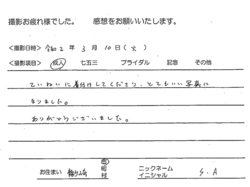 撮影お疲れ様でした。 感想をお願いいたします。
<撮影日時> 令和2年 3月 10日(火)
<撮影項目> 成人 七五三 ブライダル 記念 その他
ていねいに着付けしてくださり、とてもいい写真に
なりました。
ありがとうございました。
お住まい 市 町 村 ニックネーム イニシャル S.A